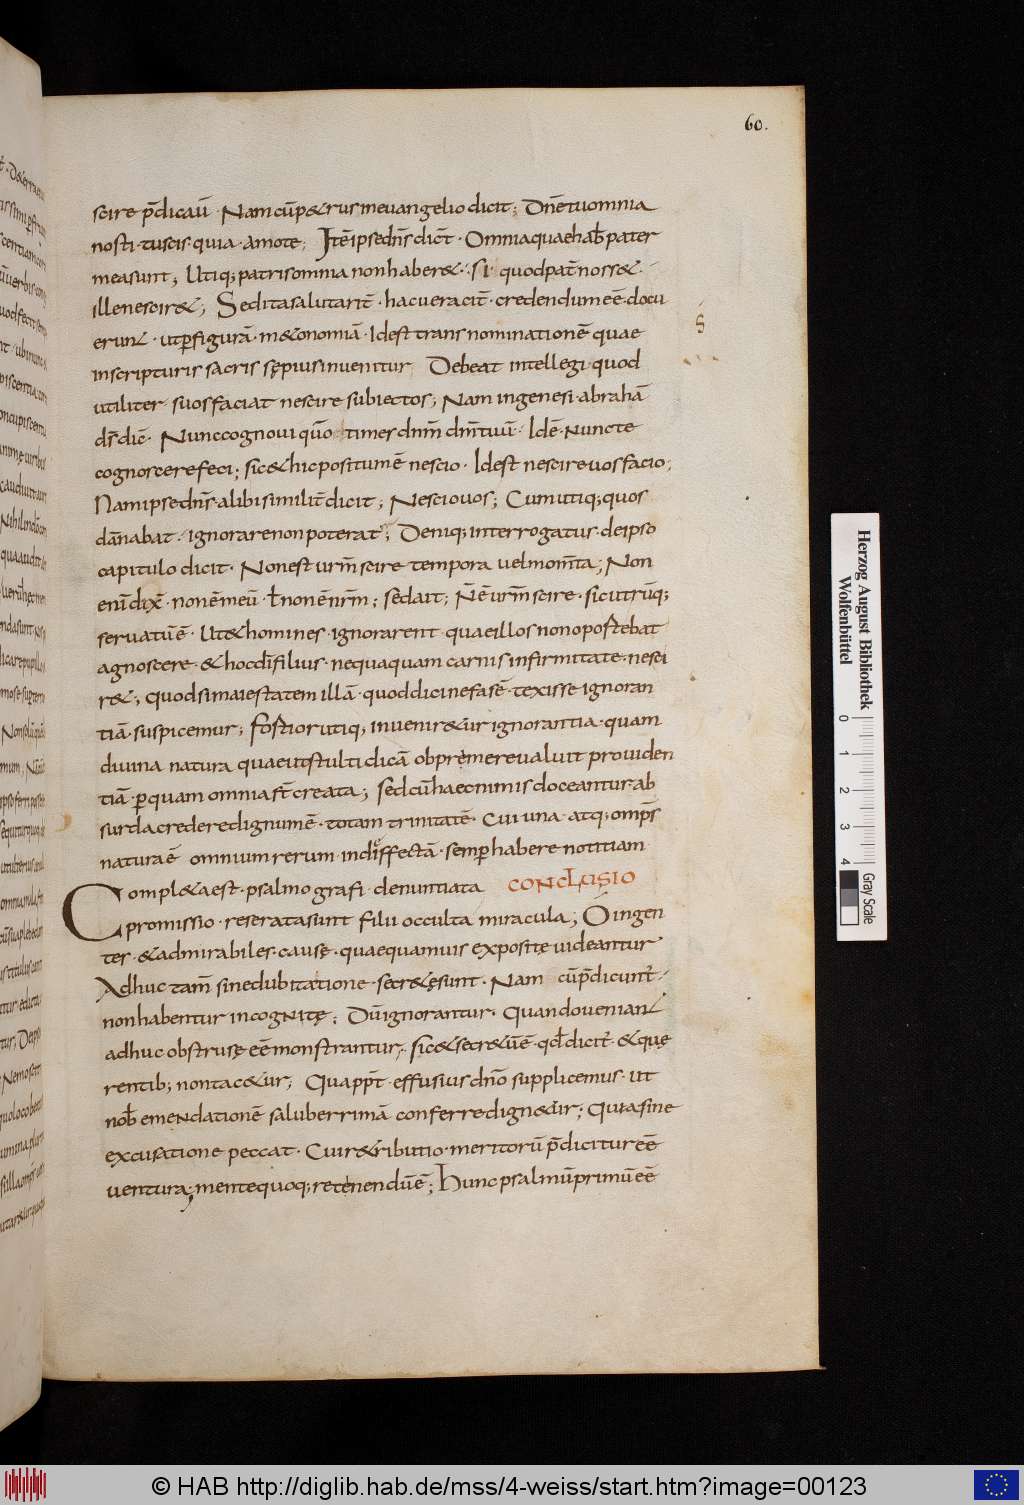 60.
scire p̄dicaū · Nam cū p&rus in euangelio dicit; Dn̄e tu omnia
nosti tu scis quia · amo te; Itē ipse dn̄s dict̄ · Omnia quae hab& pater
mea sunt; Utiq; patris omnia non haber& · si quod pat̄ noss& ·
ille nescir&; Sed ita salutarit̄ · hac ueracit̄ · credendum eē · docu
erunt · ut p figurā · m&onomiā · Idest trans nominationē quae
in scripturis sacris sępius inuenitur Debeat intellegi quod
utiliter suos faciat nescire subiectos; Nam in genesi · abrahā
dr̄ dic̄ · Nunc cognoui qūo times dnm̄ dm̄ tuū · Idē · nunc te
cognoscere feci; sic & hic positum ē nescio · Idest nescire uos facio;
Nam ipse dn̄s · alibi similit̄ dicit; Nescio uos; Cum utiq; quos
dānabat · ignorare non poterat; Deniq; interrogatus · de ipso
capitulo dicit · Non est urm̄ scire tempora uel momt̄a; Non
eni dix̄ · non ē meū · ł non ē nrm̄; sed ait; N̄ ē urm̄ scire · sic utrūq;
seruatū ē · Ut & homines · ignorarent · quae illos non oportebat
agnoscere · & hoc dī filius · nequaquam carnis infirmitate · nesci
r&; quod si maiestatem illā · quod dici nefas ē · texisse ignoran
tiā suspicemur; fortior utiq; inuenir&ur ignorantia · quam
diuina natura quae ut stulti dicā obprimere ualuit prouiden
tiā · p quam omnia st̄ creata; sed cū haec nimis doceantur ab
surda credere dignum ē · totam trinitatē · cui una · atq; omps̄
natura ē omnium rerum · indiffectā · semp habere notitiam
Compl&a est · psalmografi · denuntiata CONCLUSIO
promissio · reserata sunt filii occulta miracula; O ingen
tes · & admirabiles · cause · quae quamuis exposite uideantur
Adhuc tam̄ sine dubitatione · secr&ę sunt · Nam cū p̄dicunt̄ ·
non habentur incognitę; Dū ignorantur · Quando ueniant
adhuc obstruse eē monstrantur; sic & secr&ū ē · qd̄ dicit̄ · & quę
rentib; non tac&ur; Quappt̄ · effusius dn̄o supplicemus · ut
nob̄ emendationē saluberrimā conferre dign&ur; Quia sine
excusatione peccat · Cui r&ributio · meritorū p̄dicitur eē
uentura; mente quoq; retenendū ē; Hunc psalmū primū eē
S
Herzog August Bibliothek
Wolfenbüttel
0 1 2 3 4
Gray Scale
© HAB http://diglib.hab.de/mss/4-weiss/start.htm?image=00123